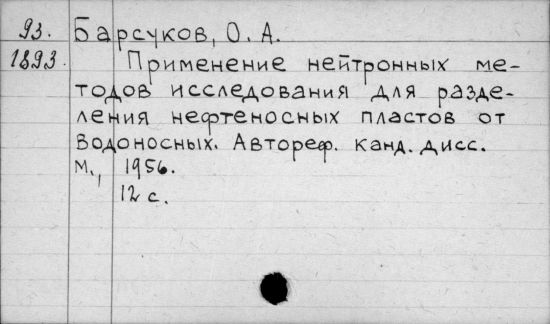 93. Барсуков, О. А.
1893. Применение нейтронных ме-
тодов исследования для разде-
ления нефтеносных пластов от
водоносных. Автореф. канд. дисс.
М., 1956.
12 с.